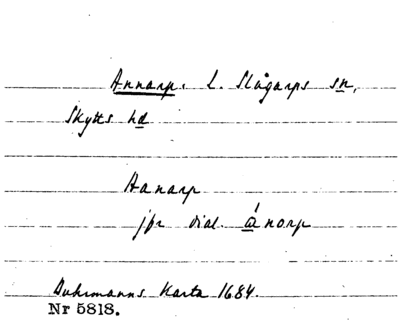 Annarp. L. Slågarps sn,
Skytts hd
Hanarp
jfr dial. ånorp
Buhrmanns Karta 1684.
Nr 5818.